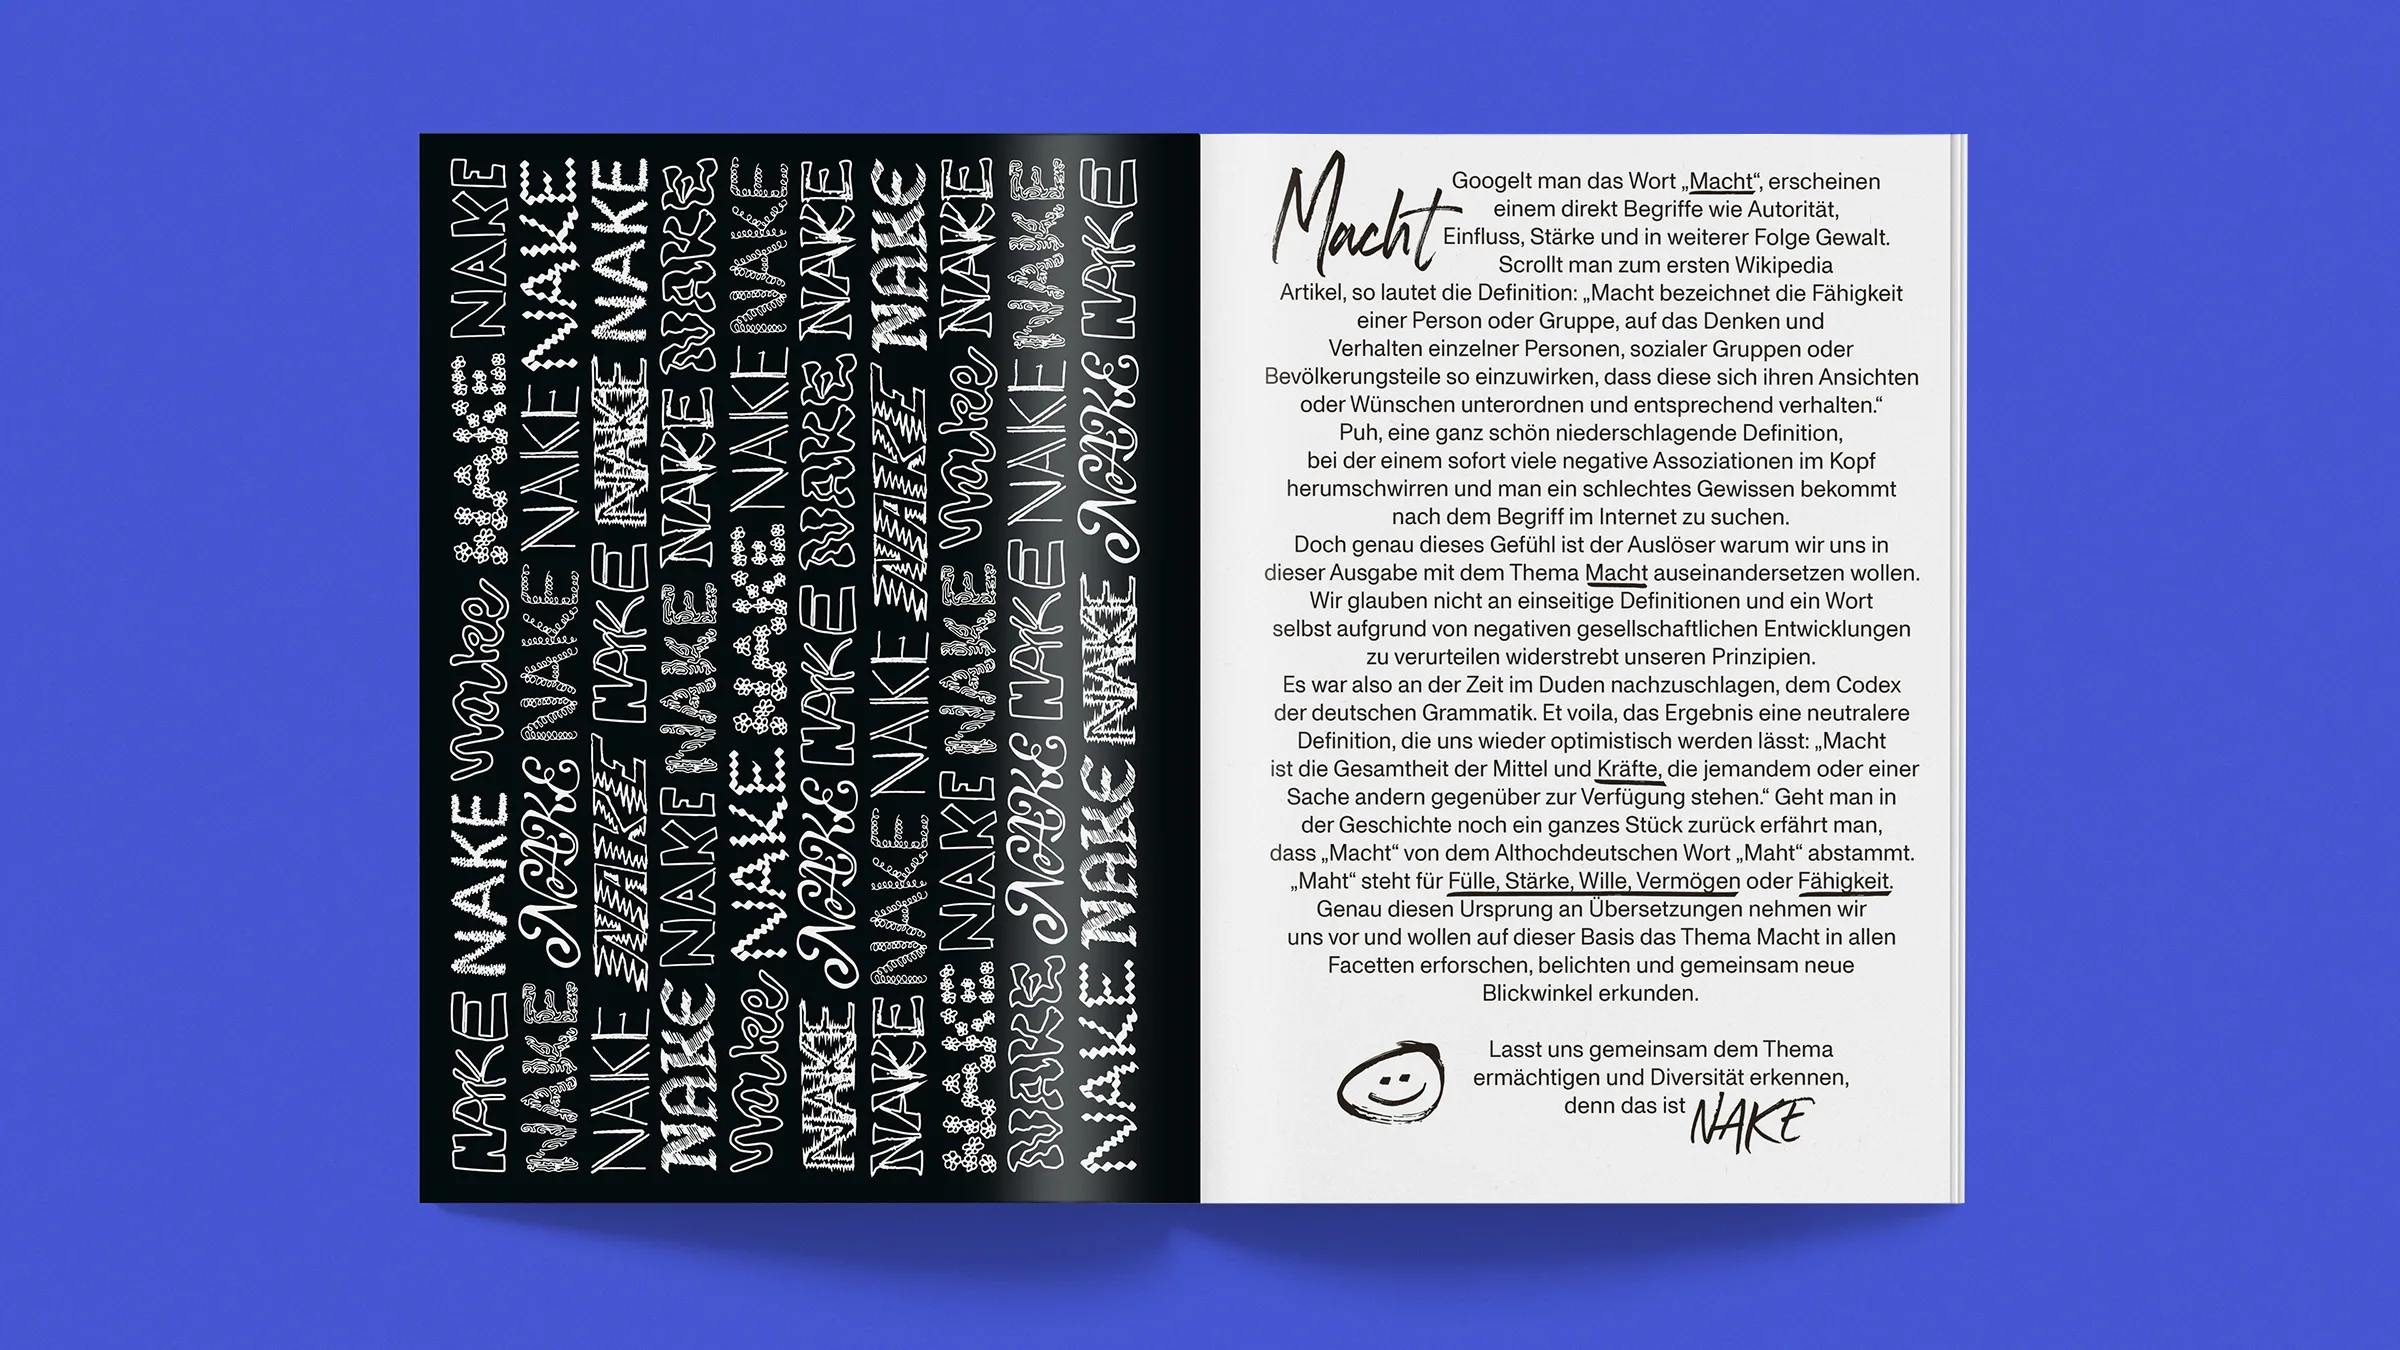 NAKE NAKE nake NAKE NAKE
NAKE NAKE NAKE NAKE NAKE
NAKE NAKE NAKE NAKE NAKE
NAKE NAKE NAKE NAKE NAKE
nake NAKE NAKE NAKE NAKE
NAKE NAKE NAKE NAKE NAKE
NAKE NAKE NAKE NAKE NAKE
NAKE NAKE NAKE nake NAKE
NAKE NAKE NAKE NAKE NAKE
NAKE NAKE NAKE NAKE NAKE
Macht
Googelt man das Wort „Macht“, erscheinen
einem direkt Begriffe wie Autorität,
Einfluss, Stärke und in weiterer Folge Gewalt.
Scrollt man zum ersten Wikipedia
Artikel, so lautet die Definition: „Macht bezeichnet die Fähigkeit
einer Person oder Gruppe, auf das Denken und
Verhalten einzelner Personen, sozialer Gruppen oder
Bevölkerungsteile so einzuwirken, dass diese sich ihren Ansichten
oder Wünschen unterordnen und entsprechend verhalten.“
Puh, eine ganz schön niederschlagende Definition,
bei der einem sofort viele negative Assoziationen im Kopf
herumschwirren und man ein schlechtes Gewissen bekommt
nach dem Begriff im Internet zu suchen.
Doch genau dieses Gefühl ist der Auslöser warum wir uns in
dieser Ausgabe mit dem Thema Macht auseinandersetzen wollen.
Wir glauben nicht an einseitige Definitionen und ein Wort
selbst aufgrund von negativen gesellschaftlichen Entwicklungen
zu verurteilen widerstrebt unseren Prinzipien.
Es war also an der Zeit im Duden nachzuschlagen, dem Codex
der deutschen Grammatik. Et voila, das Ergebnis eine neutralere
Definition, die uns wieder optimistisch werden lässt: „Macht
ist die Gesamtheit der Mittel und Kräfte, die jemandem oder einer
Sache andern gegenüber zur Verfügung stehen.“ Geht man in
der Geschichte noch ein ganzes Stück zurück erfährt man,
dass „Macht“ von dem Althochdeutschen Wort „Maht“ abstammt.
„Maht“ steht für Fülle, Stärke, Wille, Vermögen oder Fähigkeit.
Genau diesen Ursprung an Übersetzungen nehmen wir
uns vor und wollen auf dieser Basis das Thema Macht in allen
Facetten erforschen, belichten und gemeinsam neue
Blickwinkel erkunden.
Lasst uns gemeinsam dem Thema
ermächtigen und Diversität erkennen,
denn das ist NAKE